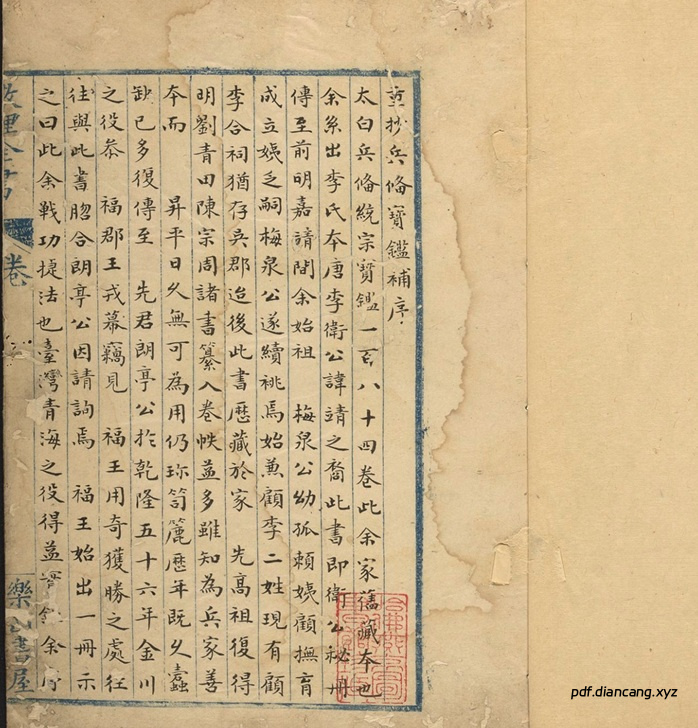 重抄兵備寶鑑補序
太白兵備統宗寶鑑一百八十四卷此余家舊藏本也
余系出李氏本唐李衛公諱靖之裔此書即衛公秘冊
傳至前明嘉靖間余始祖　梅泉公幼孤賴姨顧撫育
成立姨乏嗣梅泉公遂續祧焉始兼顧李二姓現有顧
李合祠猶存吳郡迨後此書歷藏於家　先高祖復得
明劉青田陳宗周諸書纂入卷帙益多雖知為兵家善
本而　昇平日久無可為用仍珎笥簏歷年既久蠹
缺已多復傳至　先君朗亭公於乾隆五十六年金川
之役恭　福郡王戎幕竊見　福王用奇獲勝之處往
往與此書脗合朗亭公因請詢焉　福王始出一冊示
之曰此余戰功捷法也臺灣青海之役得益余
數理全書
卷
樂山書屋
pdf.diancang.xyz